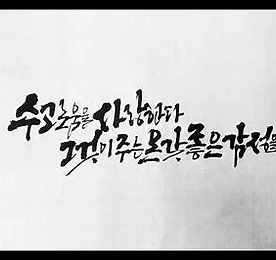 수고로움을 사랑한다
그것이 주는 온갖 좋은 감정을